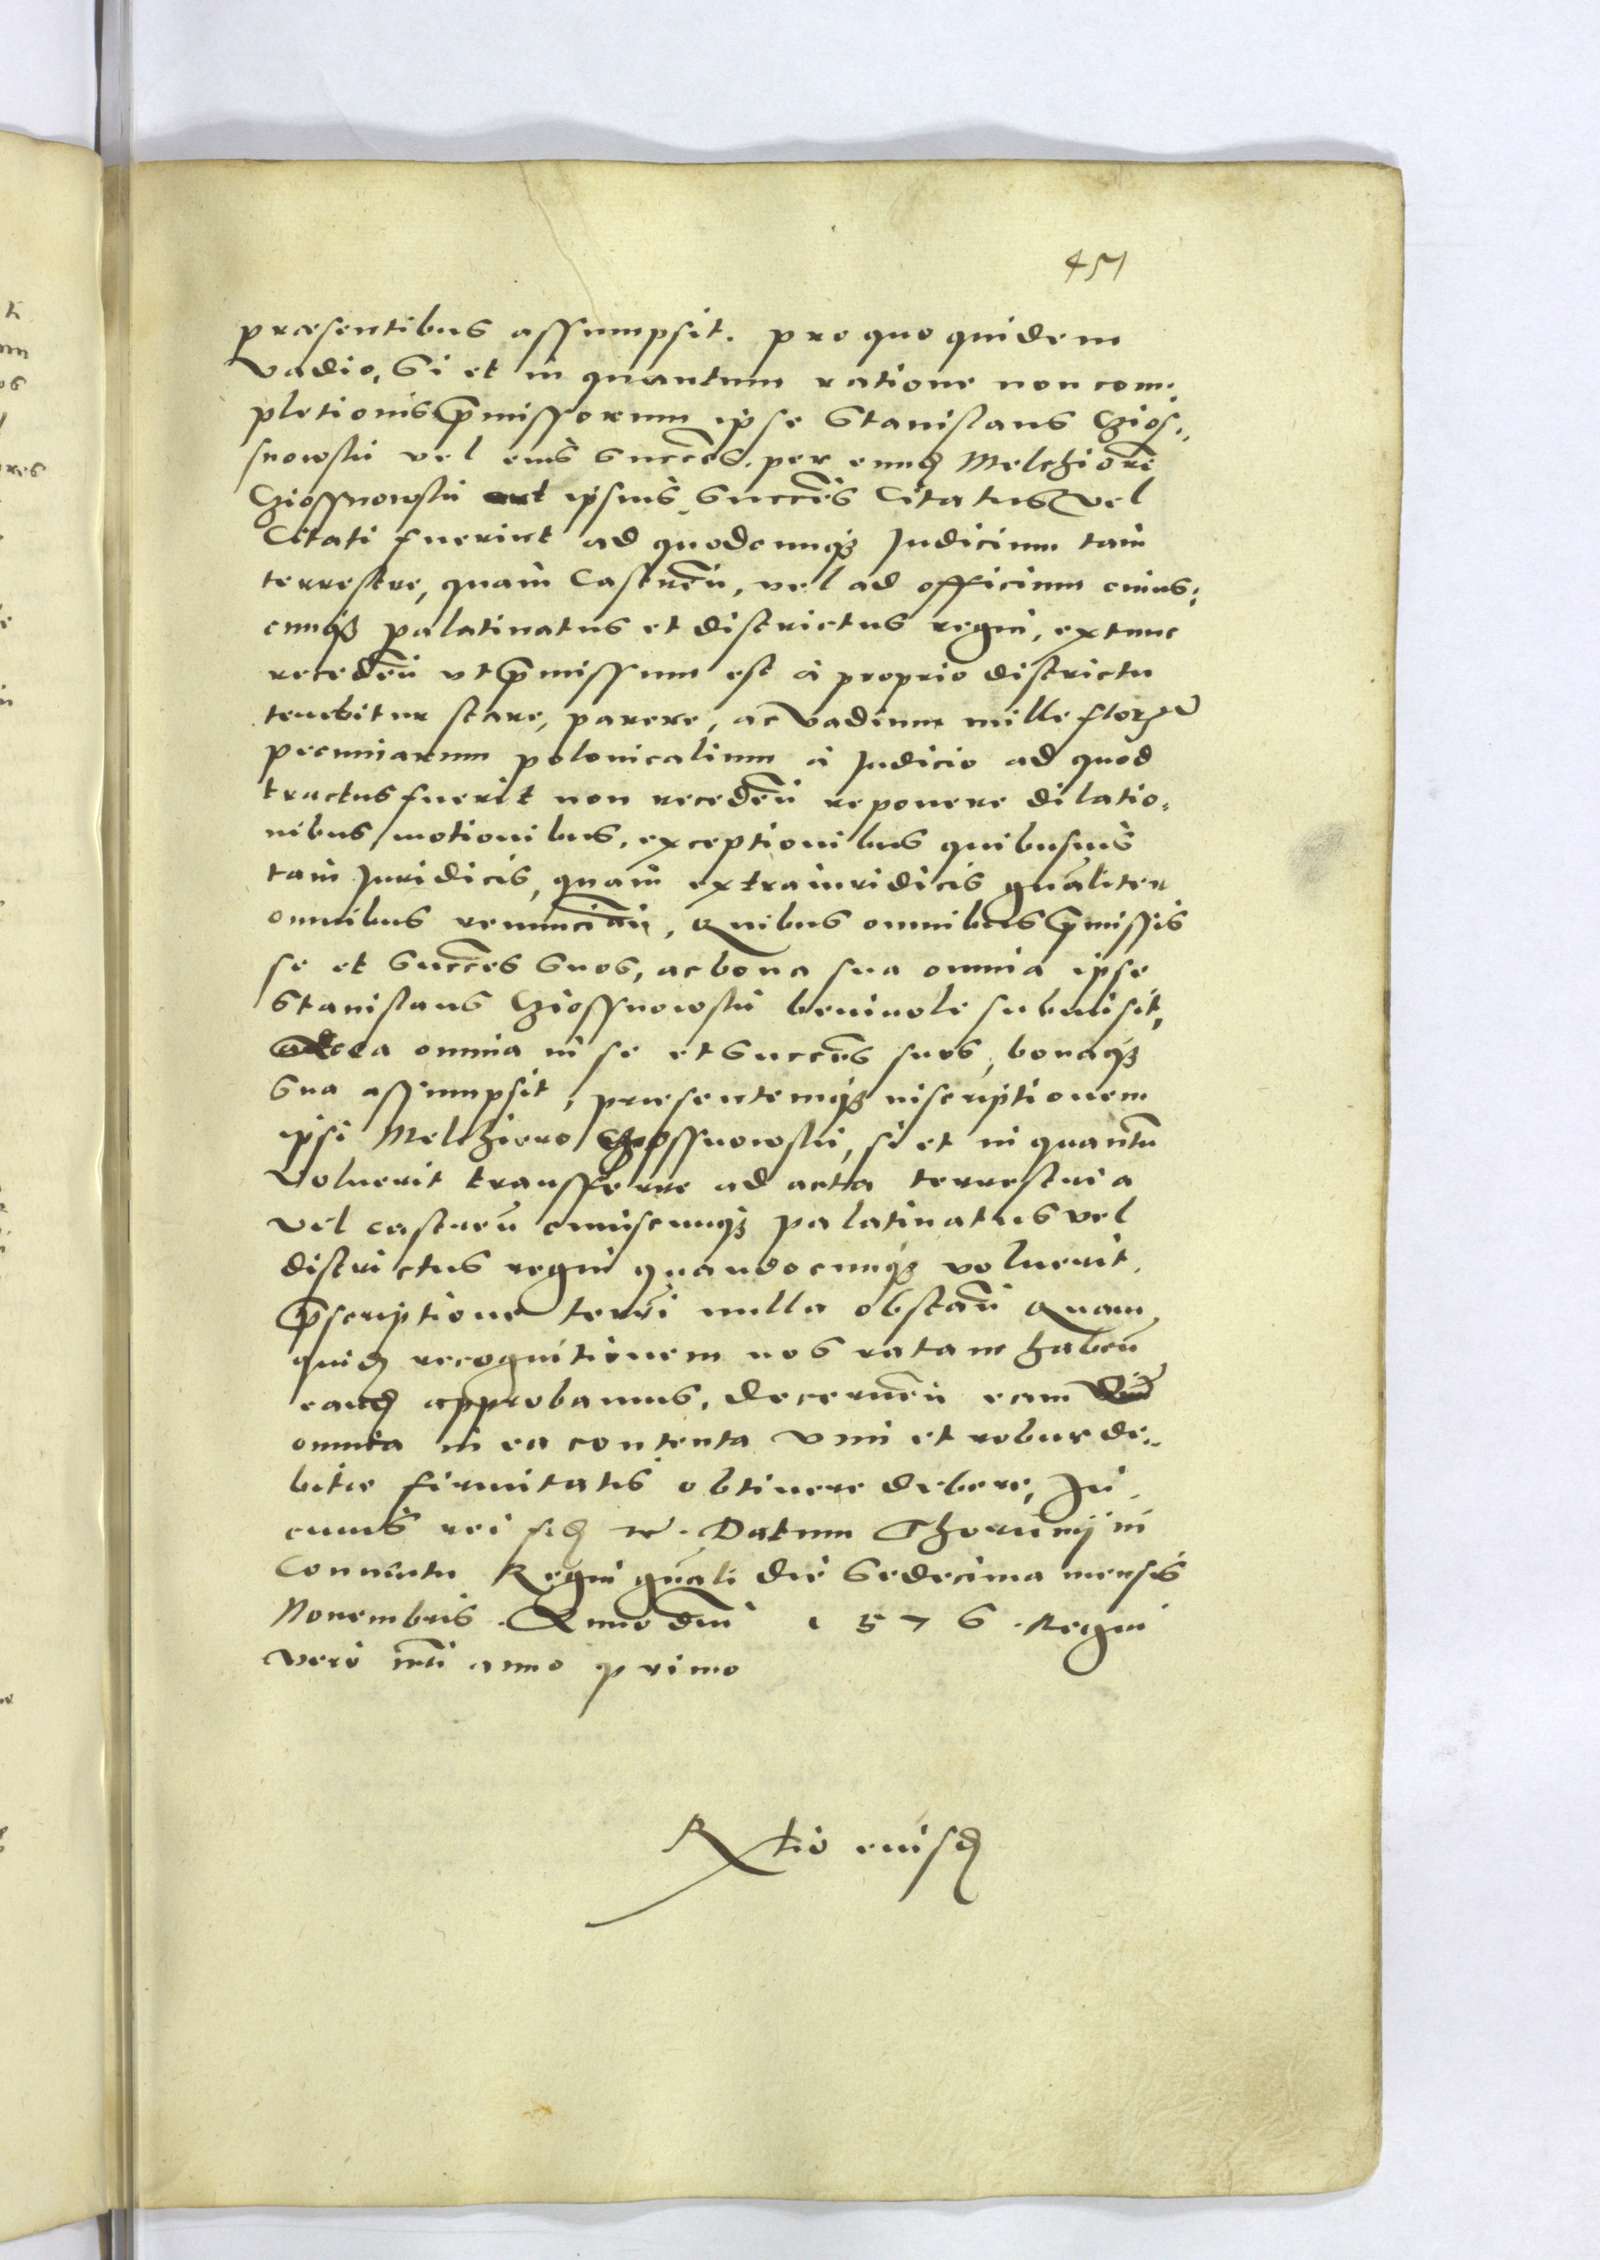 451
præsentibus assumpsit. pro quo quidem
vadio, Si et in quantum ratione non com,,
pletionis p̄missorum ipse Stanislaus Gzios,,
snowski vel eius succ̄es. per eund Melchiorē
Gziossnowski aut ipsius succ̄es Citatus vel
Citati fuerint ad quodcunqȝ Judicium tam
terrestre, quam Castreñ, vel ad officium cuius,,
cunqȝ palatinatus et districtus regni, extunc
recedeñ ut p̄missum est à proprio districtu
tenebitur stare, parere, ac vadium mille flor
pecuniarum polonicalium à Judicio ad quod
tractus fuerit non recedeñ reponere dilatio,
nibus, motionibus, exceptionibus quibusuis
tam Juridicis, quam extraiuridicis gñaliter
omnibus renuncian̄, Quibus omnibus p̄missis
se et succ̄es suos, ac bona sua omnia ipse
Stanislaus Gziossnowski beniuole submisit,
ac ea omnia in se et succ̄es suos, bonaqȝ
sua assumpsit, præsentemqȝ inscriptionem
ipsi Melchioro Gziossnowski, si et in quantū
voluerit transferre ad acta terrestria
vel castreñ cuiuscunqȝ palatinatus vel
districtus regni quandocunqȝ voluerit.
p̄scriptione terrī nulla obstañ Quam
quid recognitionem nos ratam habeñ
eand approbamus, decerneñ eam
omnia in ea contenta vim et robur de,,
bitæ firmitatis obtinere debere, In
cuius rei fid etc. Datum Thorunij in
Conuentu Regni gñali die Sedecima mensis
Nouembris. Anno dn̄i 1576. Regni
vero nr̄i anno primo
Rtio eiusd